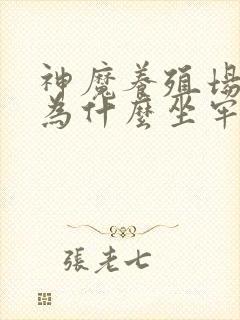 神魔養殖場
為什麼坐牢
張老七